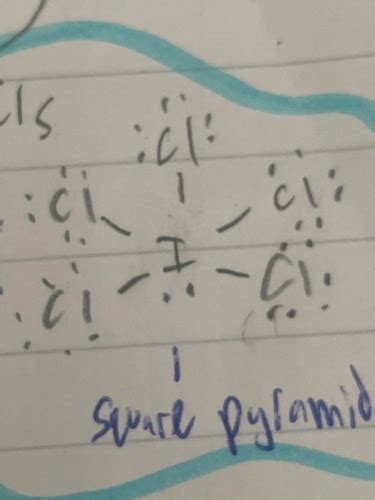 Cl
Cl Cl
I
Cl Cl
square pyramid